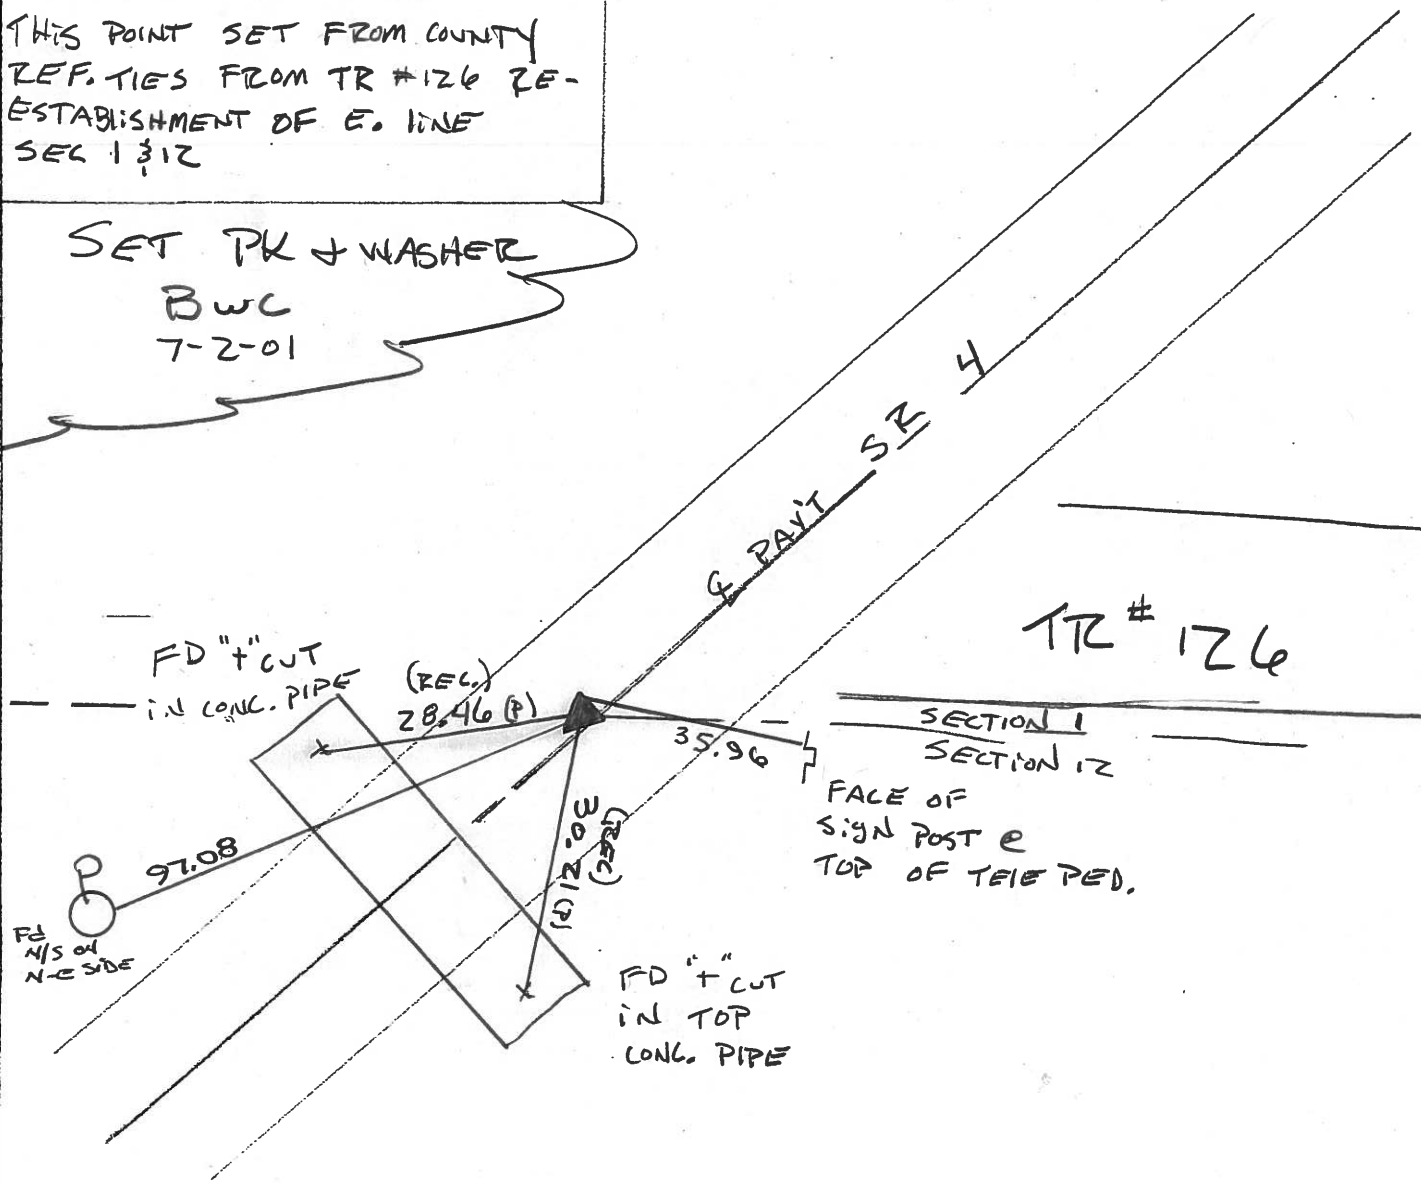 THIS POINT SET FROM COUNTY
REF. TIES FROM TR #126 RE-
ESTABLISHMENT OF E. LINE
SEC 1 & 12
SET PK + WASHER
BWC
7-2-01
SR 4
℄ PAV'T
TR # 126
FD "+" CUT
IN CONC. PIPE
(REC.)
28.46 (P)
35.96
SECTION 1
SECTION 12
FACE OF
SIGN POST @
TOP OF TELE PED.
30.21 (P)
(REC)
97.08
P
Fd
N/S ON
N-E SIDE
FD "+" CUT
IN TOP
CONC. PIPE